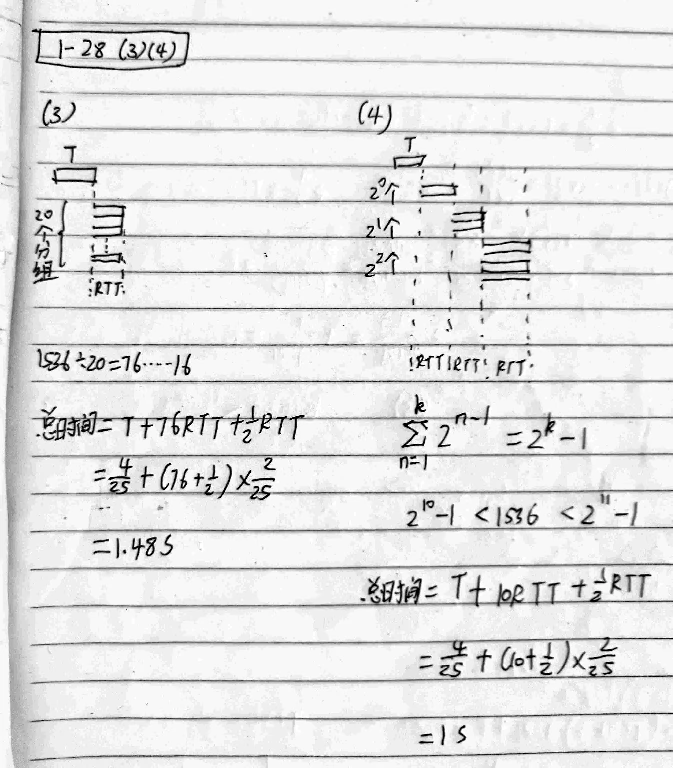 1-28 (3)(4)
(3)
T
20个分组
RTT
1536÷20=76……16
总时间= T+76RTT+½RTT
= 4/25 + (76+½)×2/25
=1.48s
(4)
T
2⁰个
2¹个
2²个
RTT RTT RTT
∑ₙ₌₁ᵏ 2ⁿ⁻¹ = 2ᵏ-1
2¹⁰-1 <1536 <2¹¹-1
总时间= T+ 10RTT +½RTT
= 4/25 + (10+½)×2/25
=1s